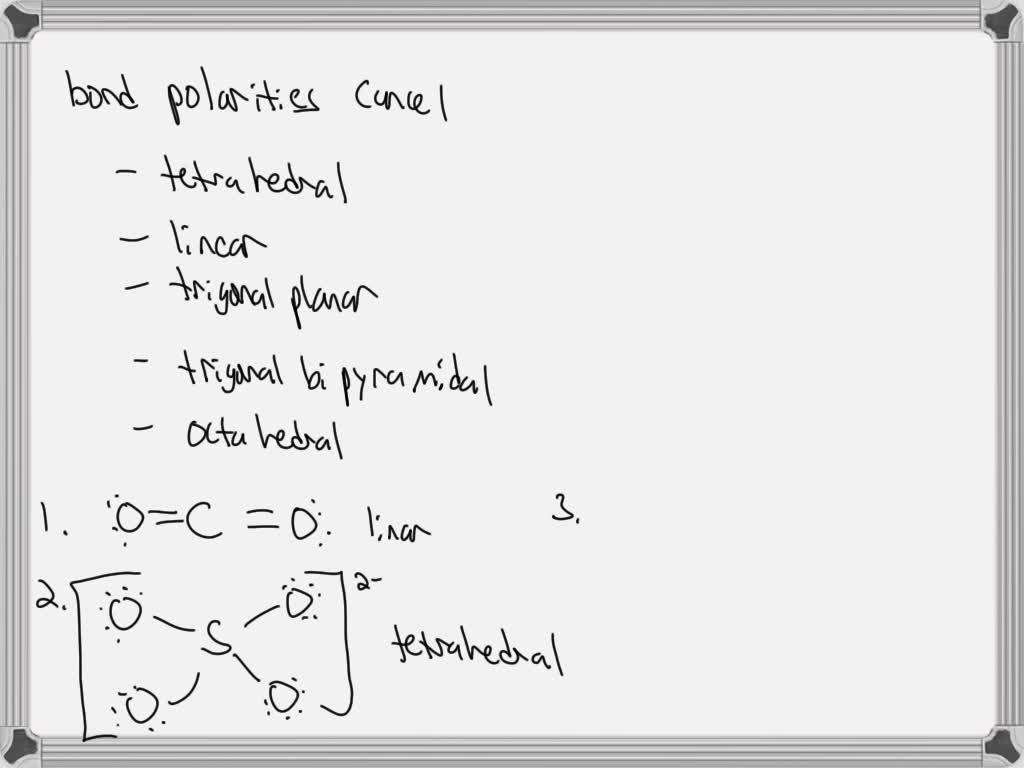 bond polarities cancel
- tetrahedral
- linear
- trigonal planar
- trigonal bi pyramidal
- octahedral
1. O=C=O linar
3.
2. [O O S O O]2- tetrahedral